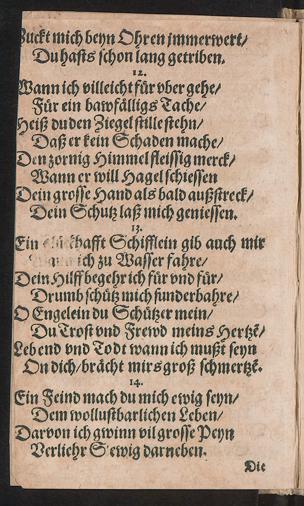 Zuckt mich beyn Ohren jmmerwert/
Du hasts schon lang getriben.
12.
Wann ich villeicht für vber gehe/
Für ein bawfälligs Tache/
Heiß du den Ziegel stille stehn/
Daß er kein Schaden mache/
Den zornig Himmel fleissig merck/
Wann er will Hagel schiessen
Dein grosse Hand als bald außstreck/
Dein Schutz laß mich geniessen.
13.
Ein hafft Schifflein gib auch mir
ich zu Wasser fahre/
Dein Hilff begehr ich für vnd für/
Drumb schütz mich sunderbahre/
O Engelein du Schützer mein/
Du Trost vnd Frewd meins Hertzē/
Lebend vnd Todt wann ich mußt seyn
On dich/ brächt mirs groß schmertzē.
14.
Ein Feind mach du mich ewig seyn/
Dem wollustbarlichen Leben/
Darvon ich gwinn vil grosse Peyn
Verliehr S ewig darneben.
Die